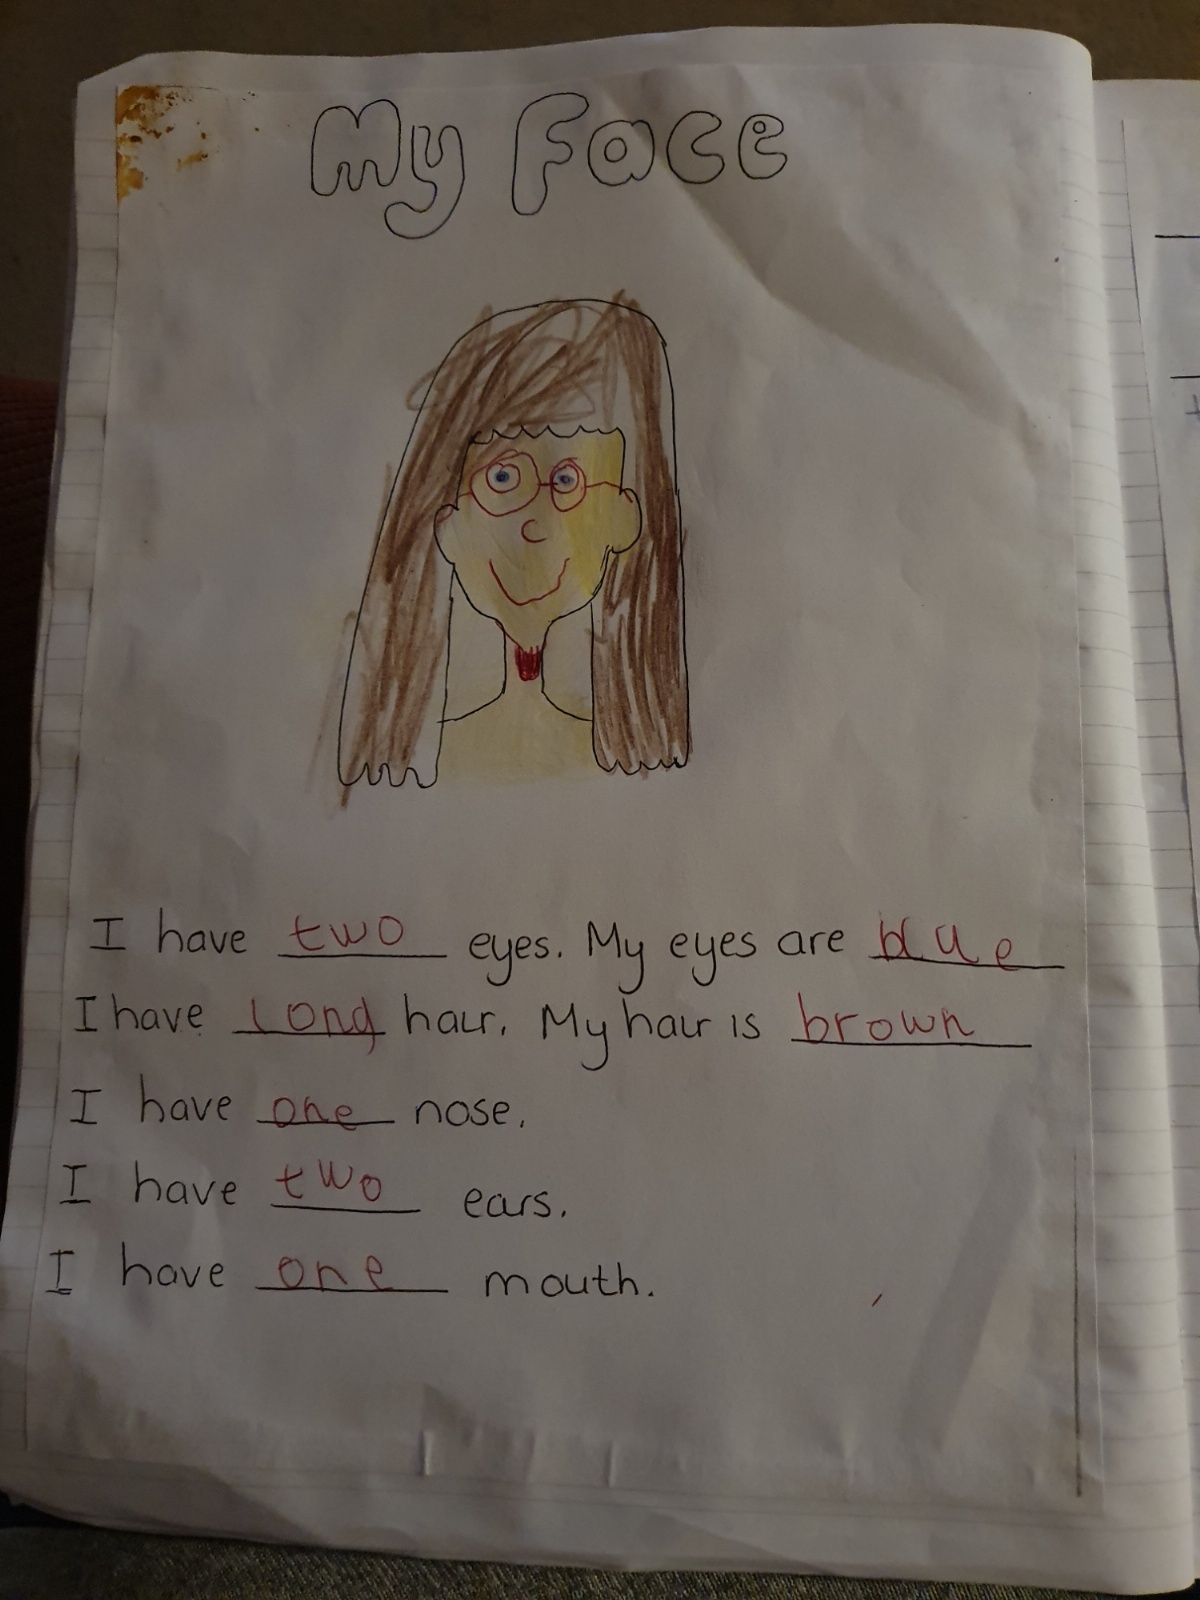 My Face
I have two eyes. My eyes are blue
I have long hair. My hair is brown
I have one nose.
I have two ears.
I have one mouth.